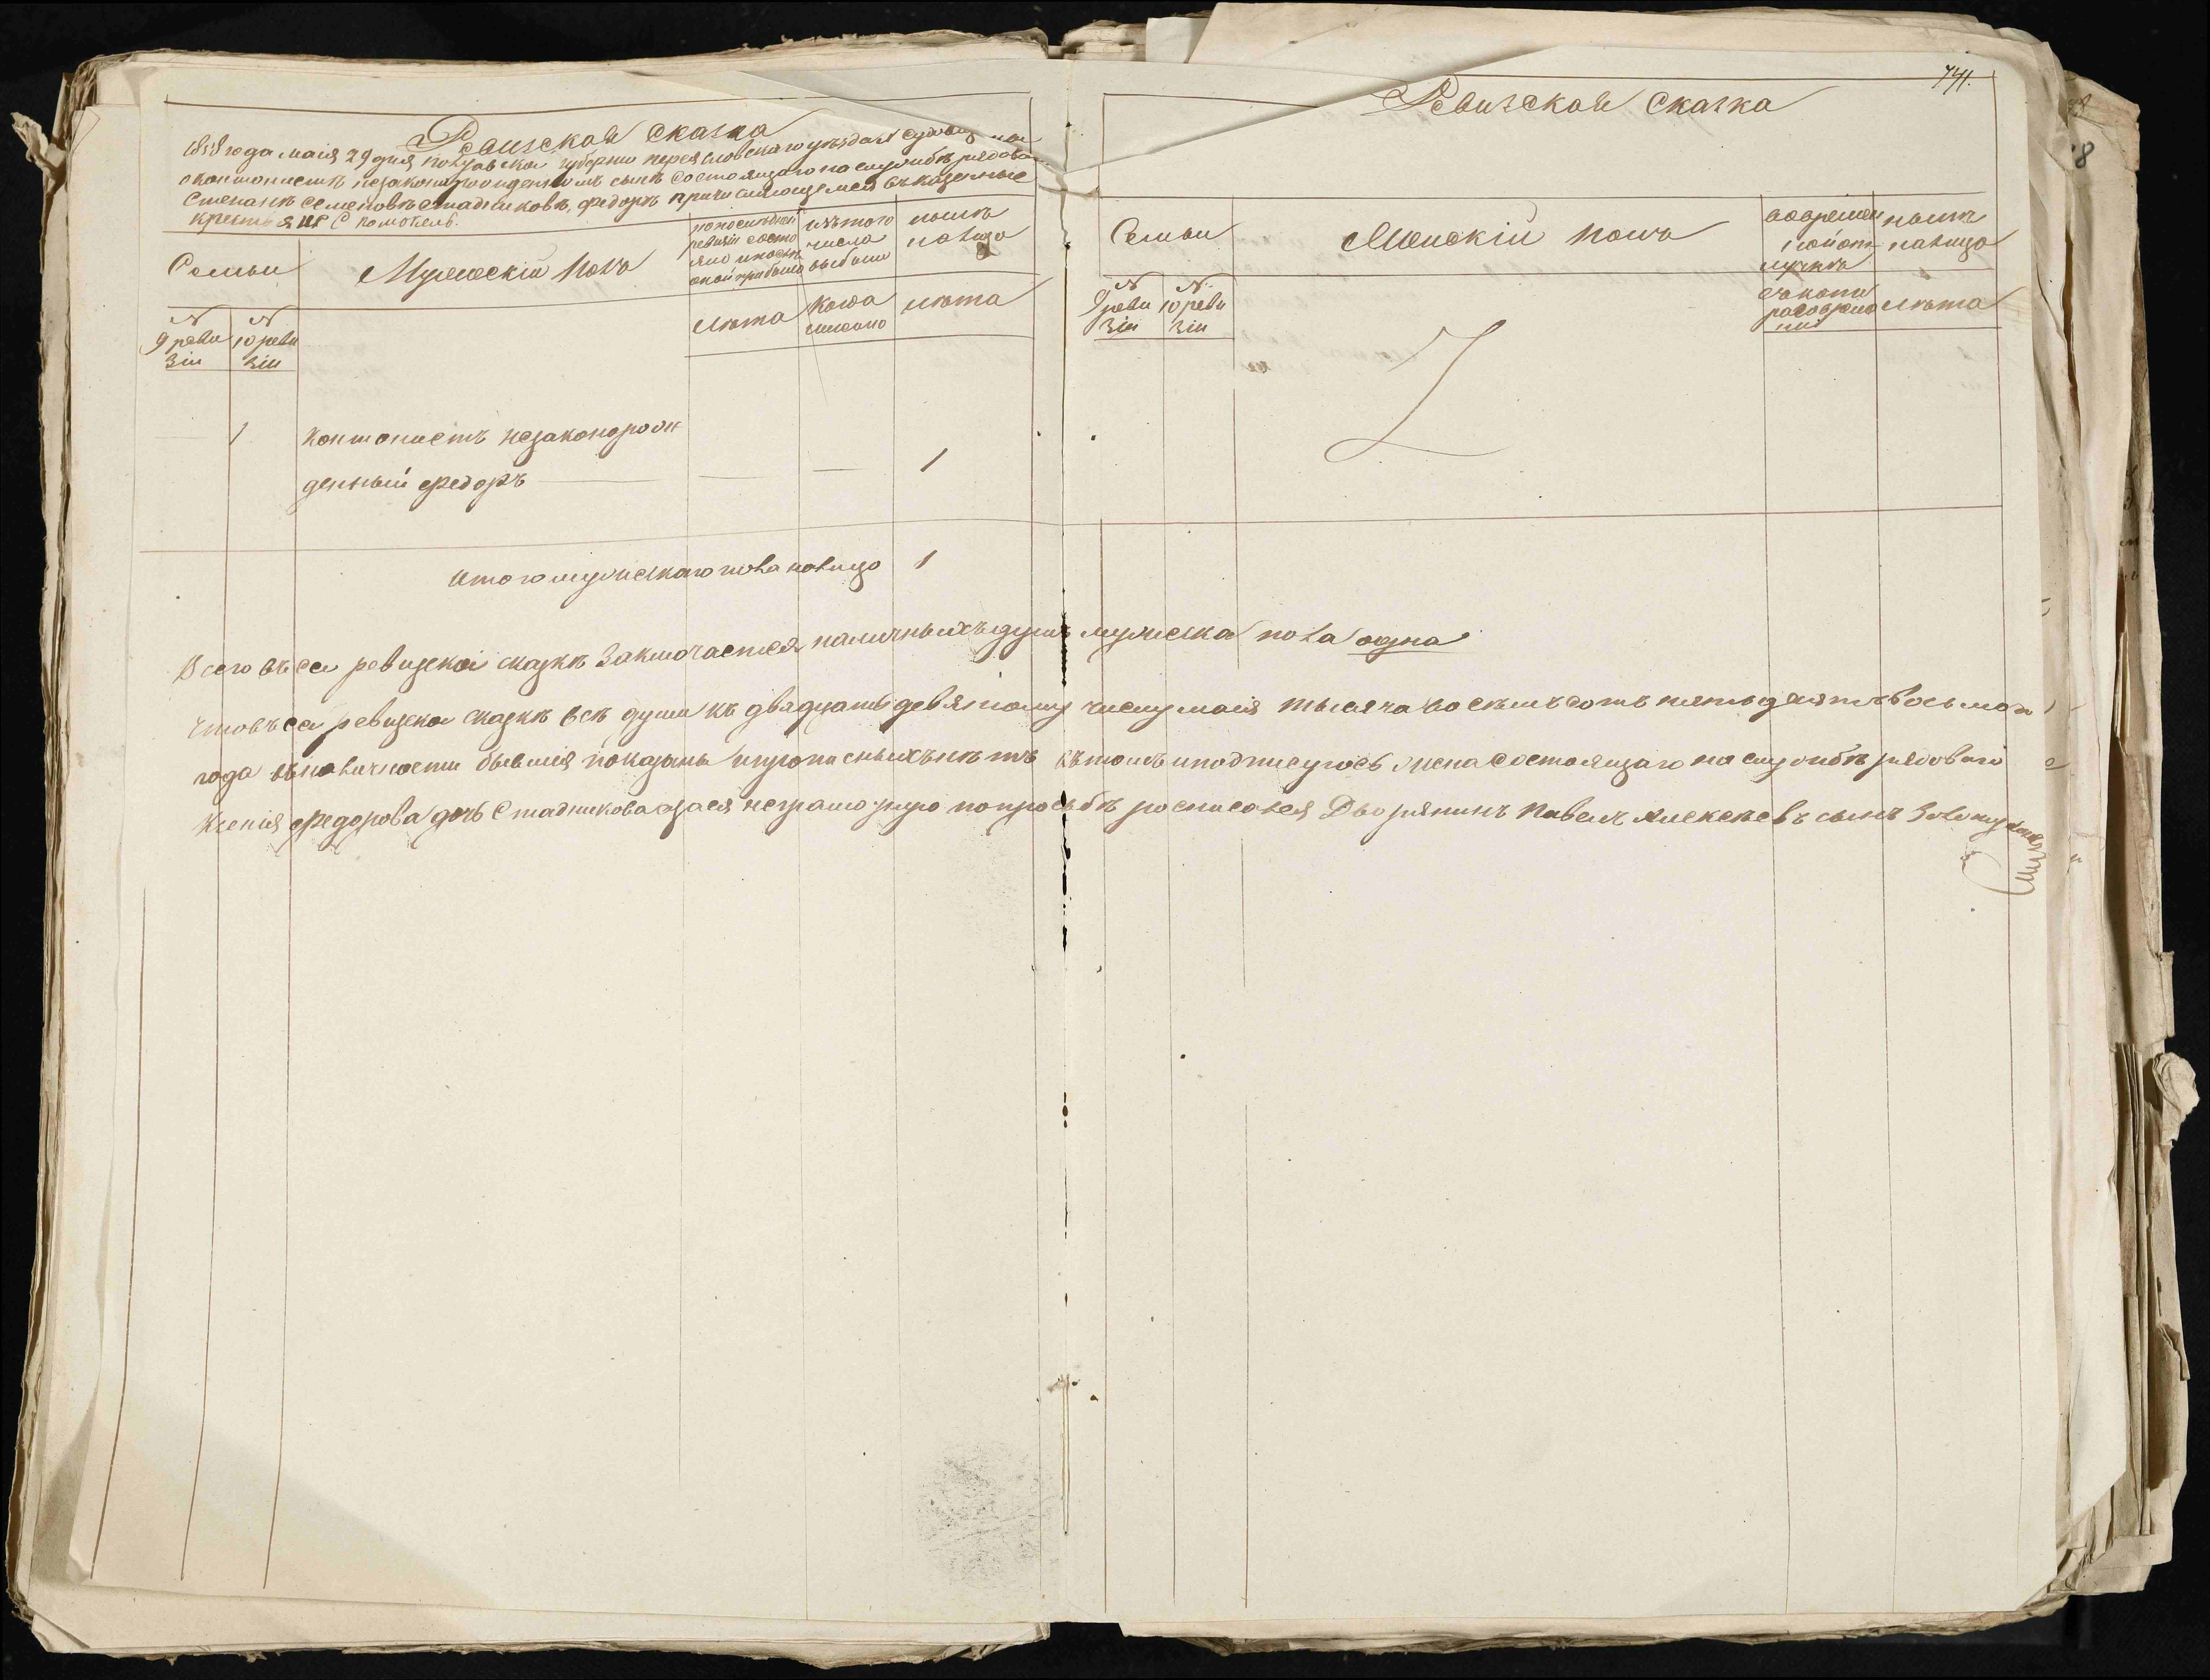 Ревизская сказка
1858 года маія 29 дня полтавской губерніи переяславскаго уѣзда
о кантонистѣ незаконнорожденномъ сынѣ состоящаго на службѣ рядоваго
Степанѣ Семеновѣ Стадниковѣ, федорѣ причисляющемся въ казенные
крестьяне С Помокель.
Семьи
Мужескій полъ
по последней ревизіи состояло и после оной прибыло
изъ того числа выбыло
ныне налицо
№ 9 ревизіи
№ 10 ревизіи
лѣта
когда именно
лѣта
1 Контонистъ незаконорож
денный федоръ — — 1
Итого мужескаго пола налицо 1
741.
Ревизская сказка
Семьи
Женскій полъ
во времен ной отлучкѣ
ныне налицо
№ 9 ревизіи
№ 10 ревизіи
съ коего времени
лѣта
Всего въ сей ревизской сказкѣ заключается наличныхъ душъ мужеска пола одна
Что въ сей ревизской сказкѣ всѣ души къ двадцать девятому числу маія тысяча восемъ сотъ пятьдесятъ восьмого
года въ наличности бывшія показаны и прописныхъ нѣтъ въ томъ и подписуюсь жена состоящаго на службѣ рядоваго
Ксенія федорова дочь Стадникова а за ея неграмотную по просьбѣ росписался Дворянинъ Павелъ Алексѣевъ сынъ